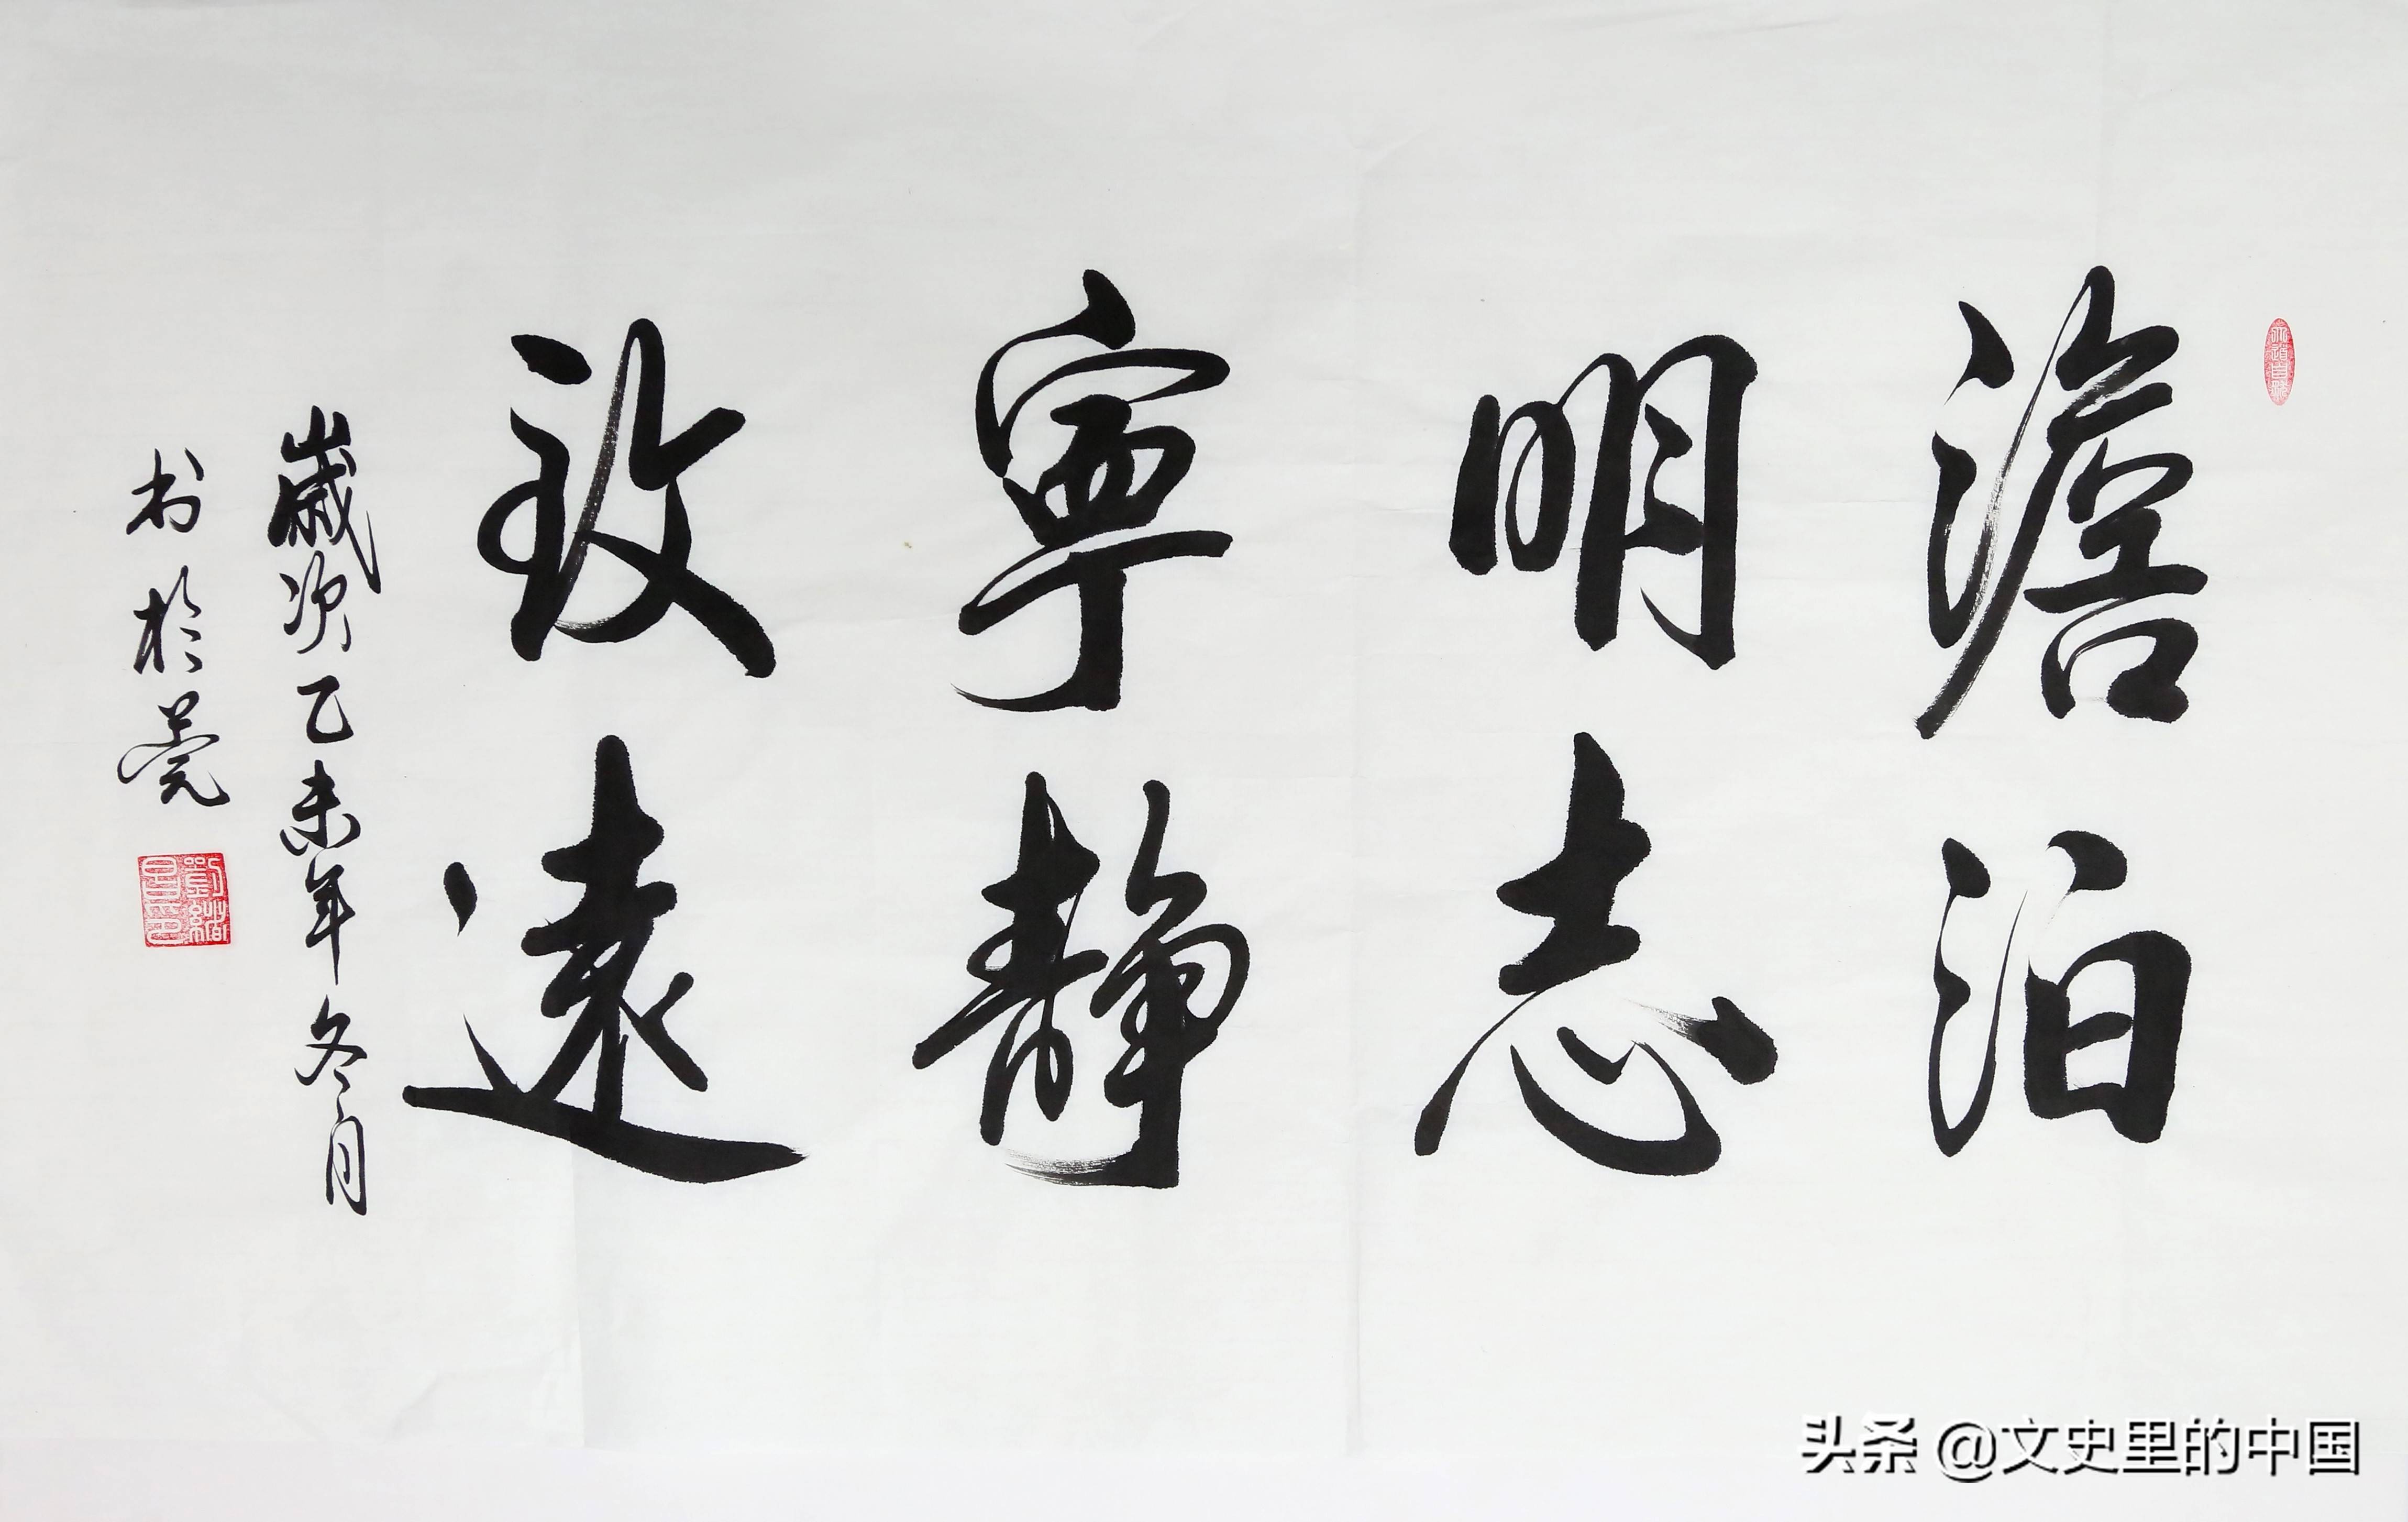 澹泊
明志
寧静
致遠
歲次乙未年冬月
书於莞
头条 @文史里的中国